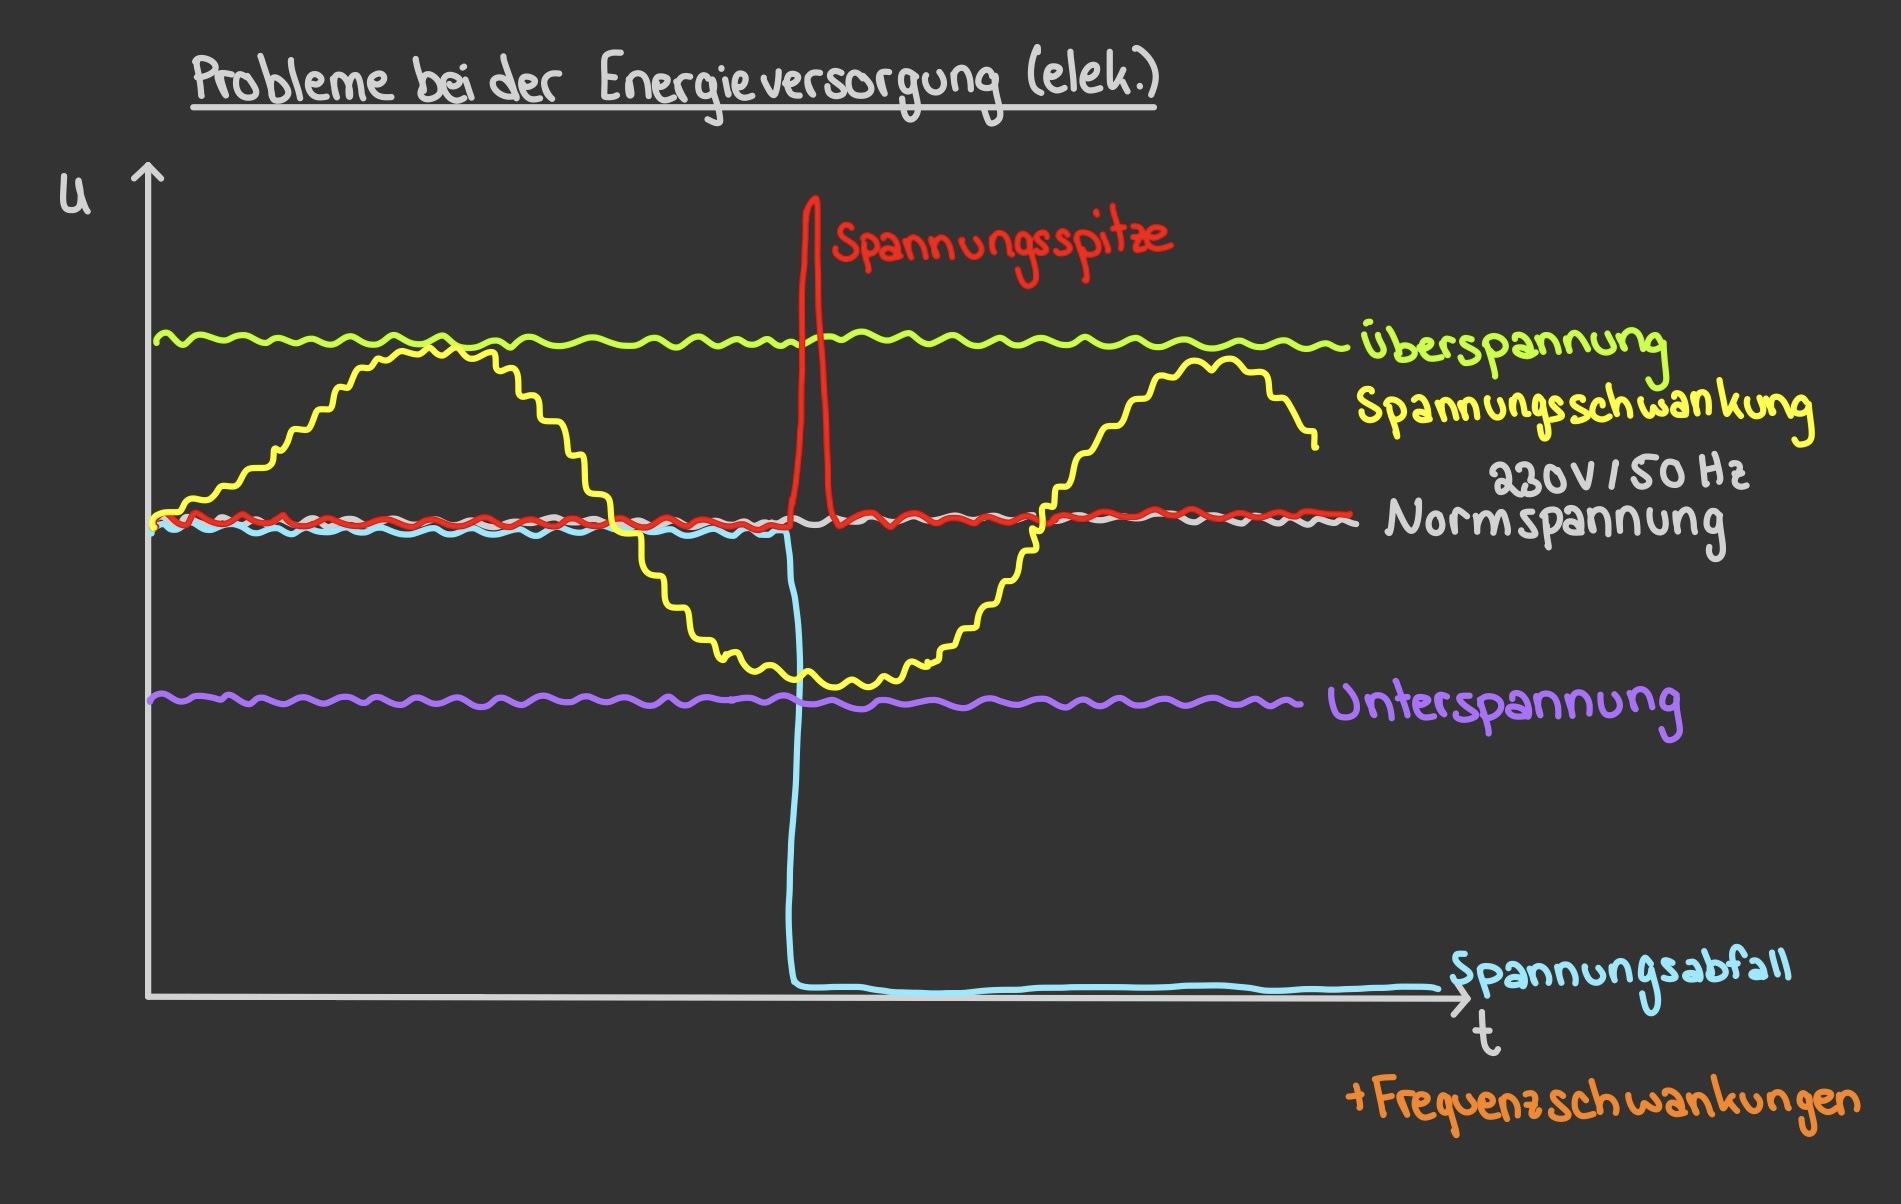 Probleme bei der Energieversorgung (elek.)
U
Spannungsspitze
Überspannung
Spannungsschwankung
230V/50 Hz
Normspannung
Unterspannung
Spannungsabfall
t
+Frequenzschwankungen